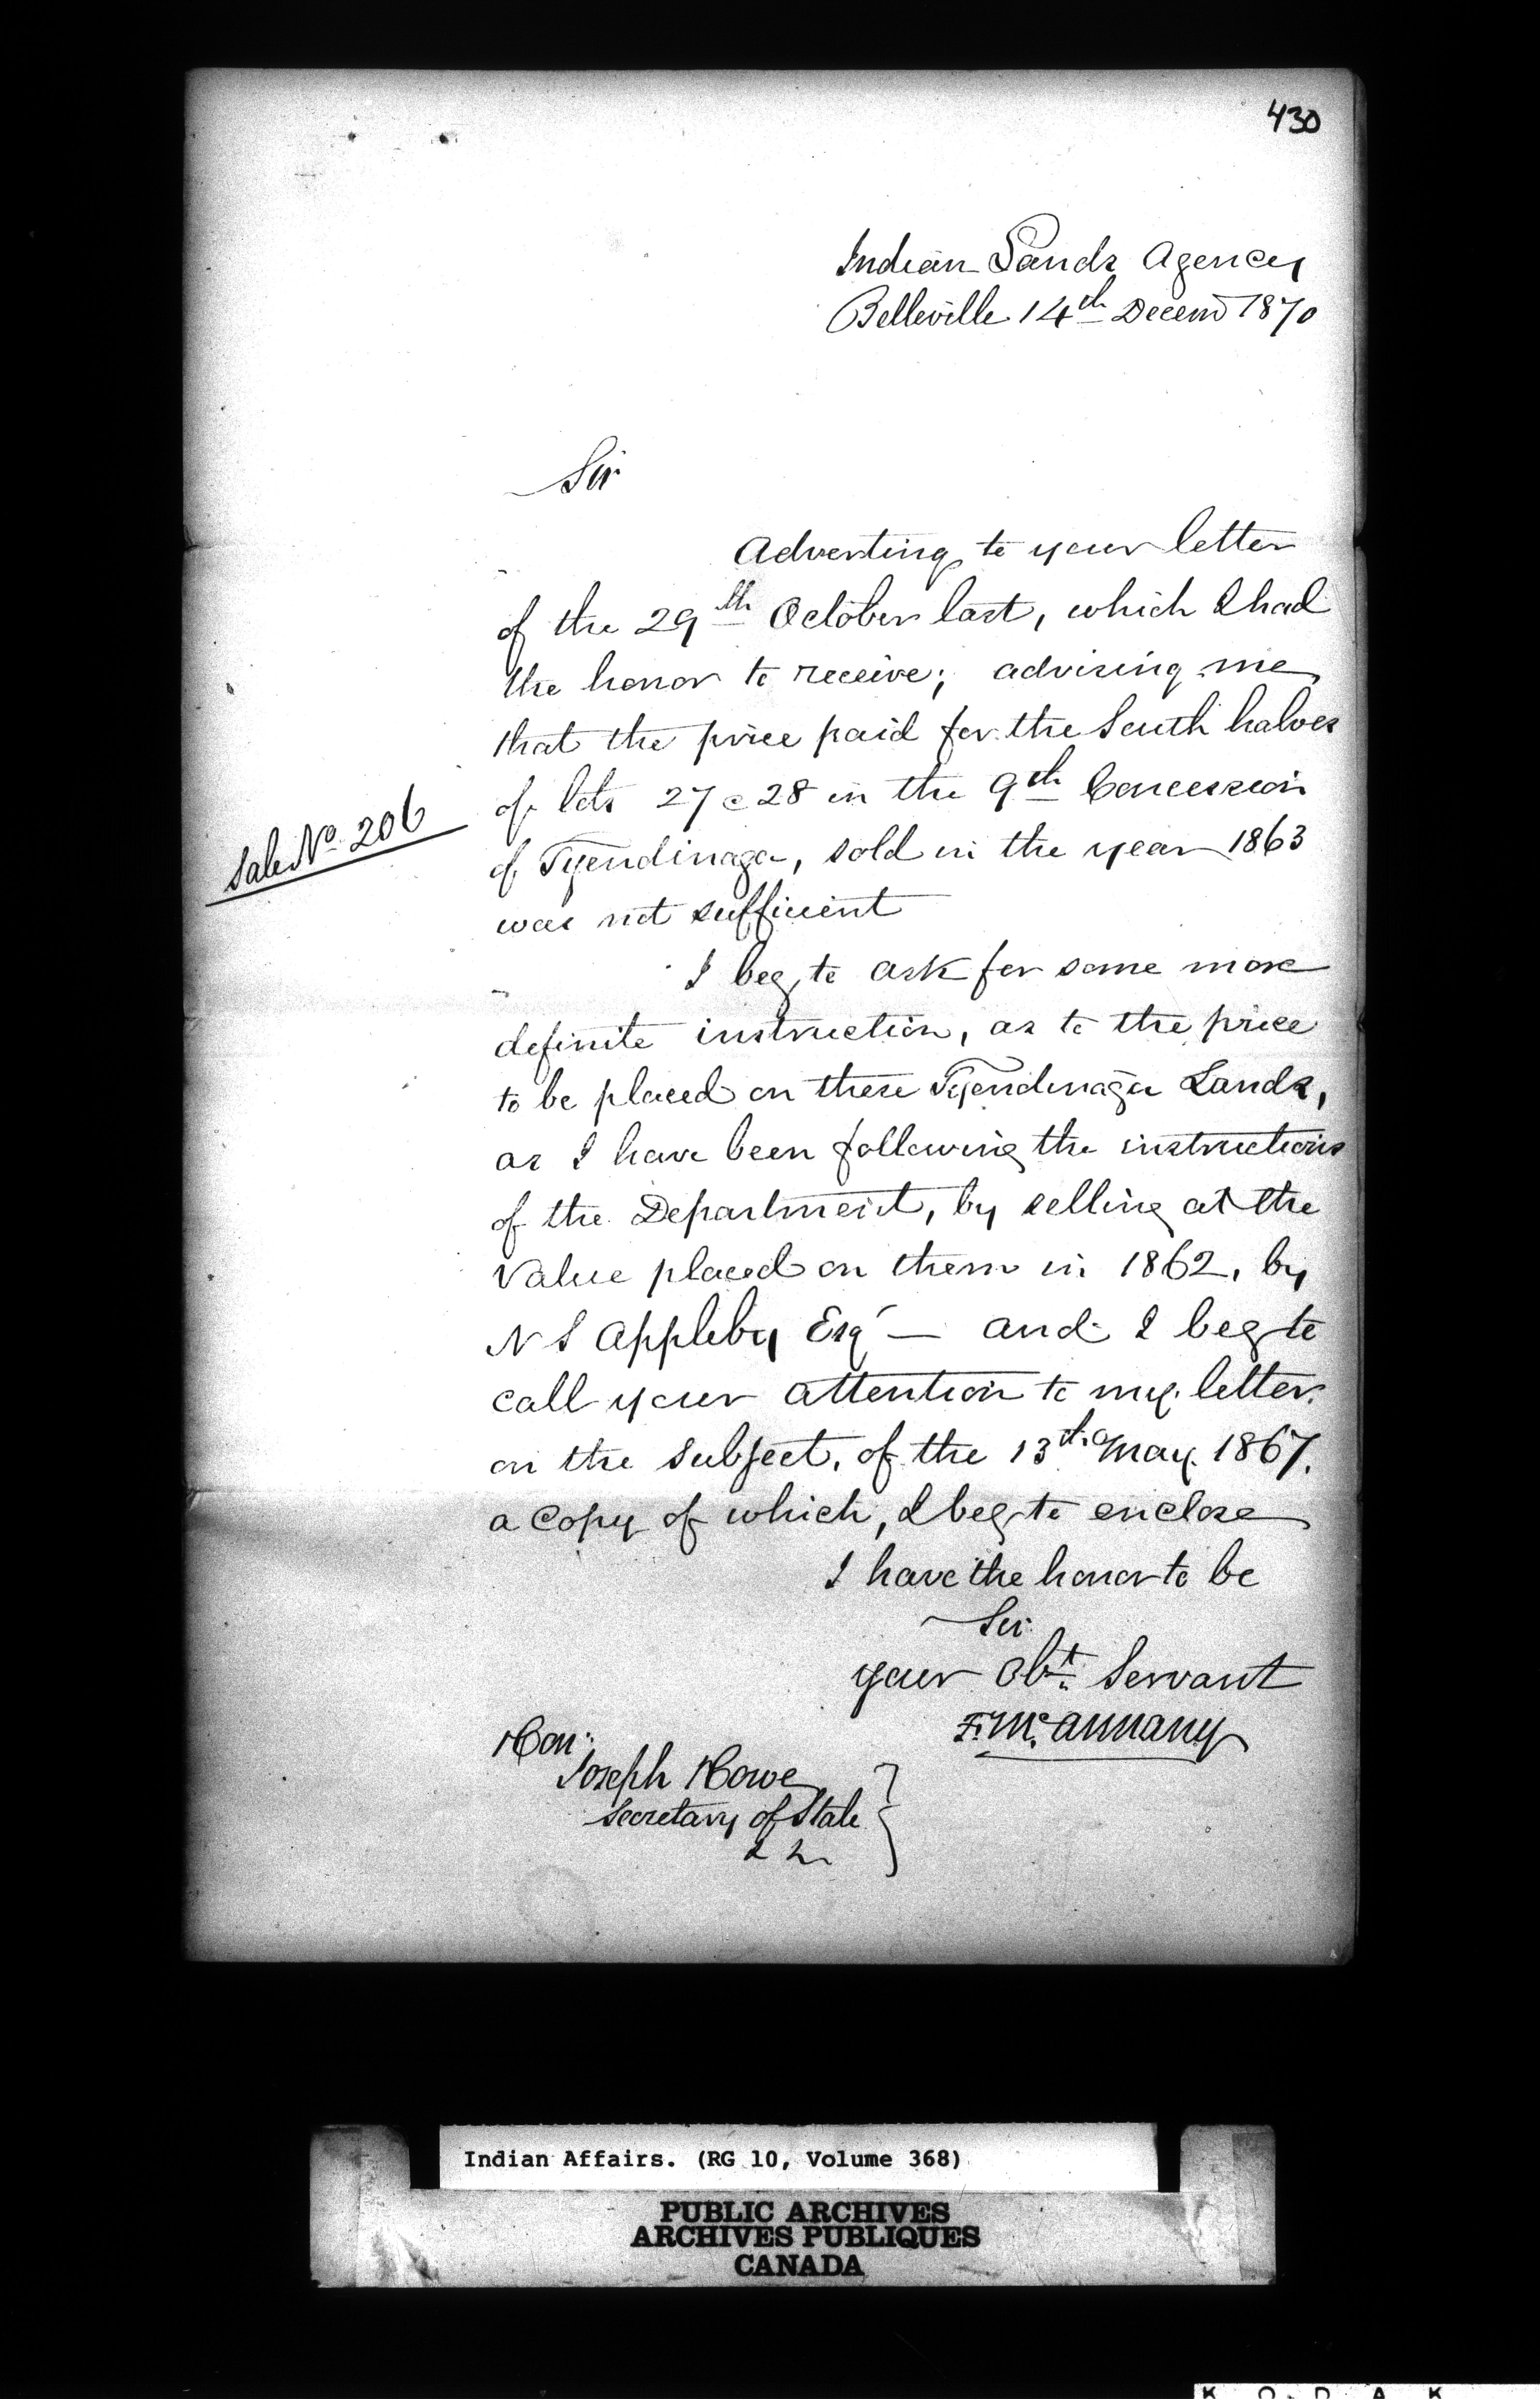 430
Indian Lands Agency
Belleville 14th Decem 1870
Sir
Adverting to your letter
of the 29th October last, which I had
the honor to receive; advising me
that the price paid for the South halves
of lots 27 & 28 in the 9th Concession
Sale No. 206
of Tyendinaga, sold in the year 1863
was not sufficient
I beg to ask for some more
definite instruction, as to the price
to be placed on these Tyendinaga Lands,
as I have been following the instructions
of the Department, by selling at the
Value placed on them in 1862, by
N S Appleby Esqr — and I beg to
call your attention to my letter
on the subject, of the 13th May 1867,
a Copy of which, I beg to enclose
I have the honor to be
Sir
your Obt. Servant
F. McAnnany
Hon:
Joseph Howe
Secretary of State
Indian Affairs. (RG 10, Volume 368)
PUBLIC ARCHIVES
ARCHIVES PUBLIQUES
CANADA
K O D A K